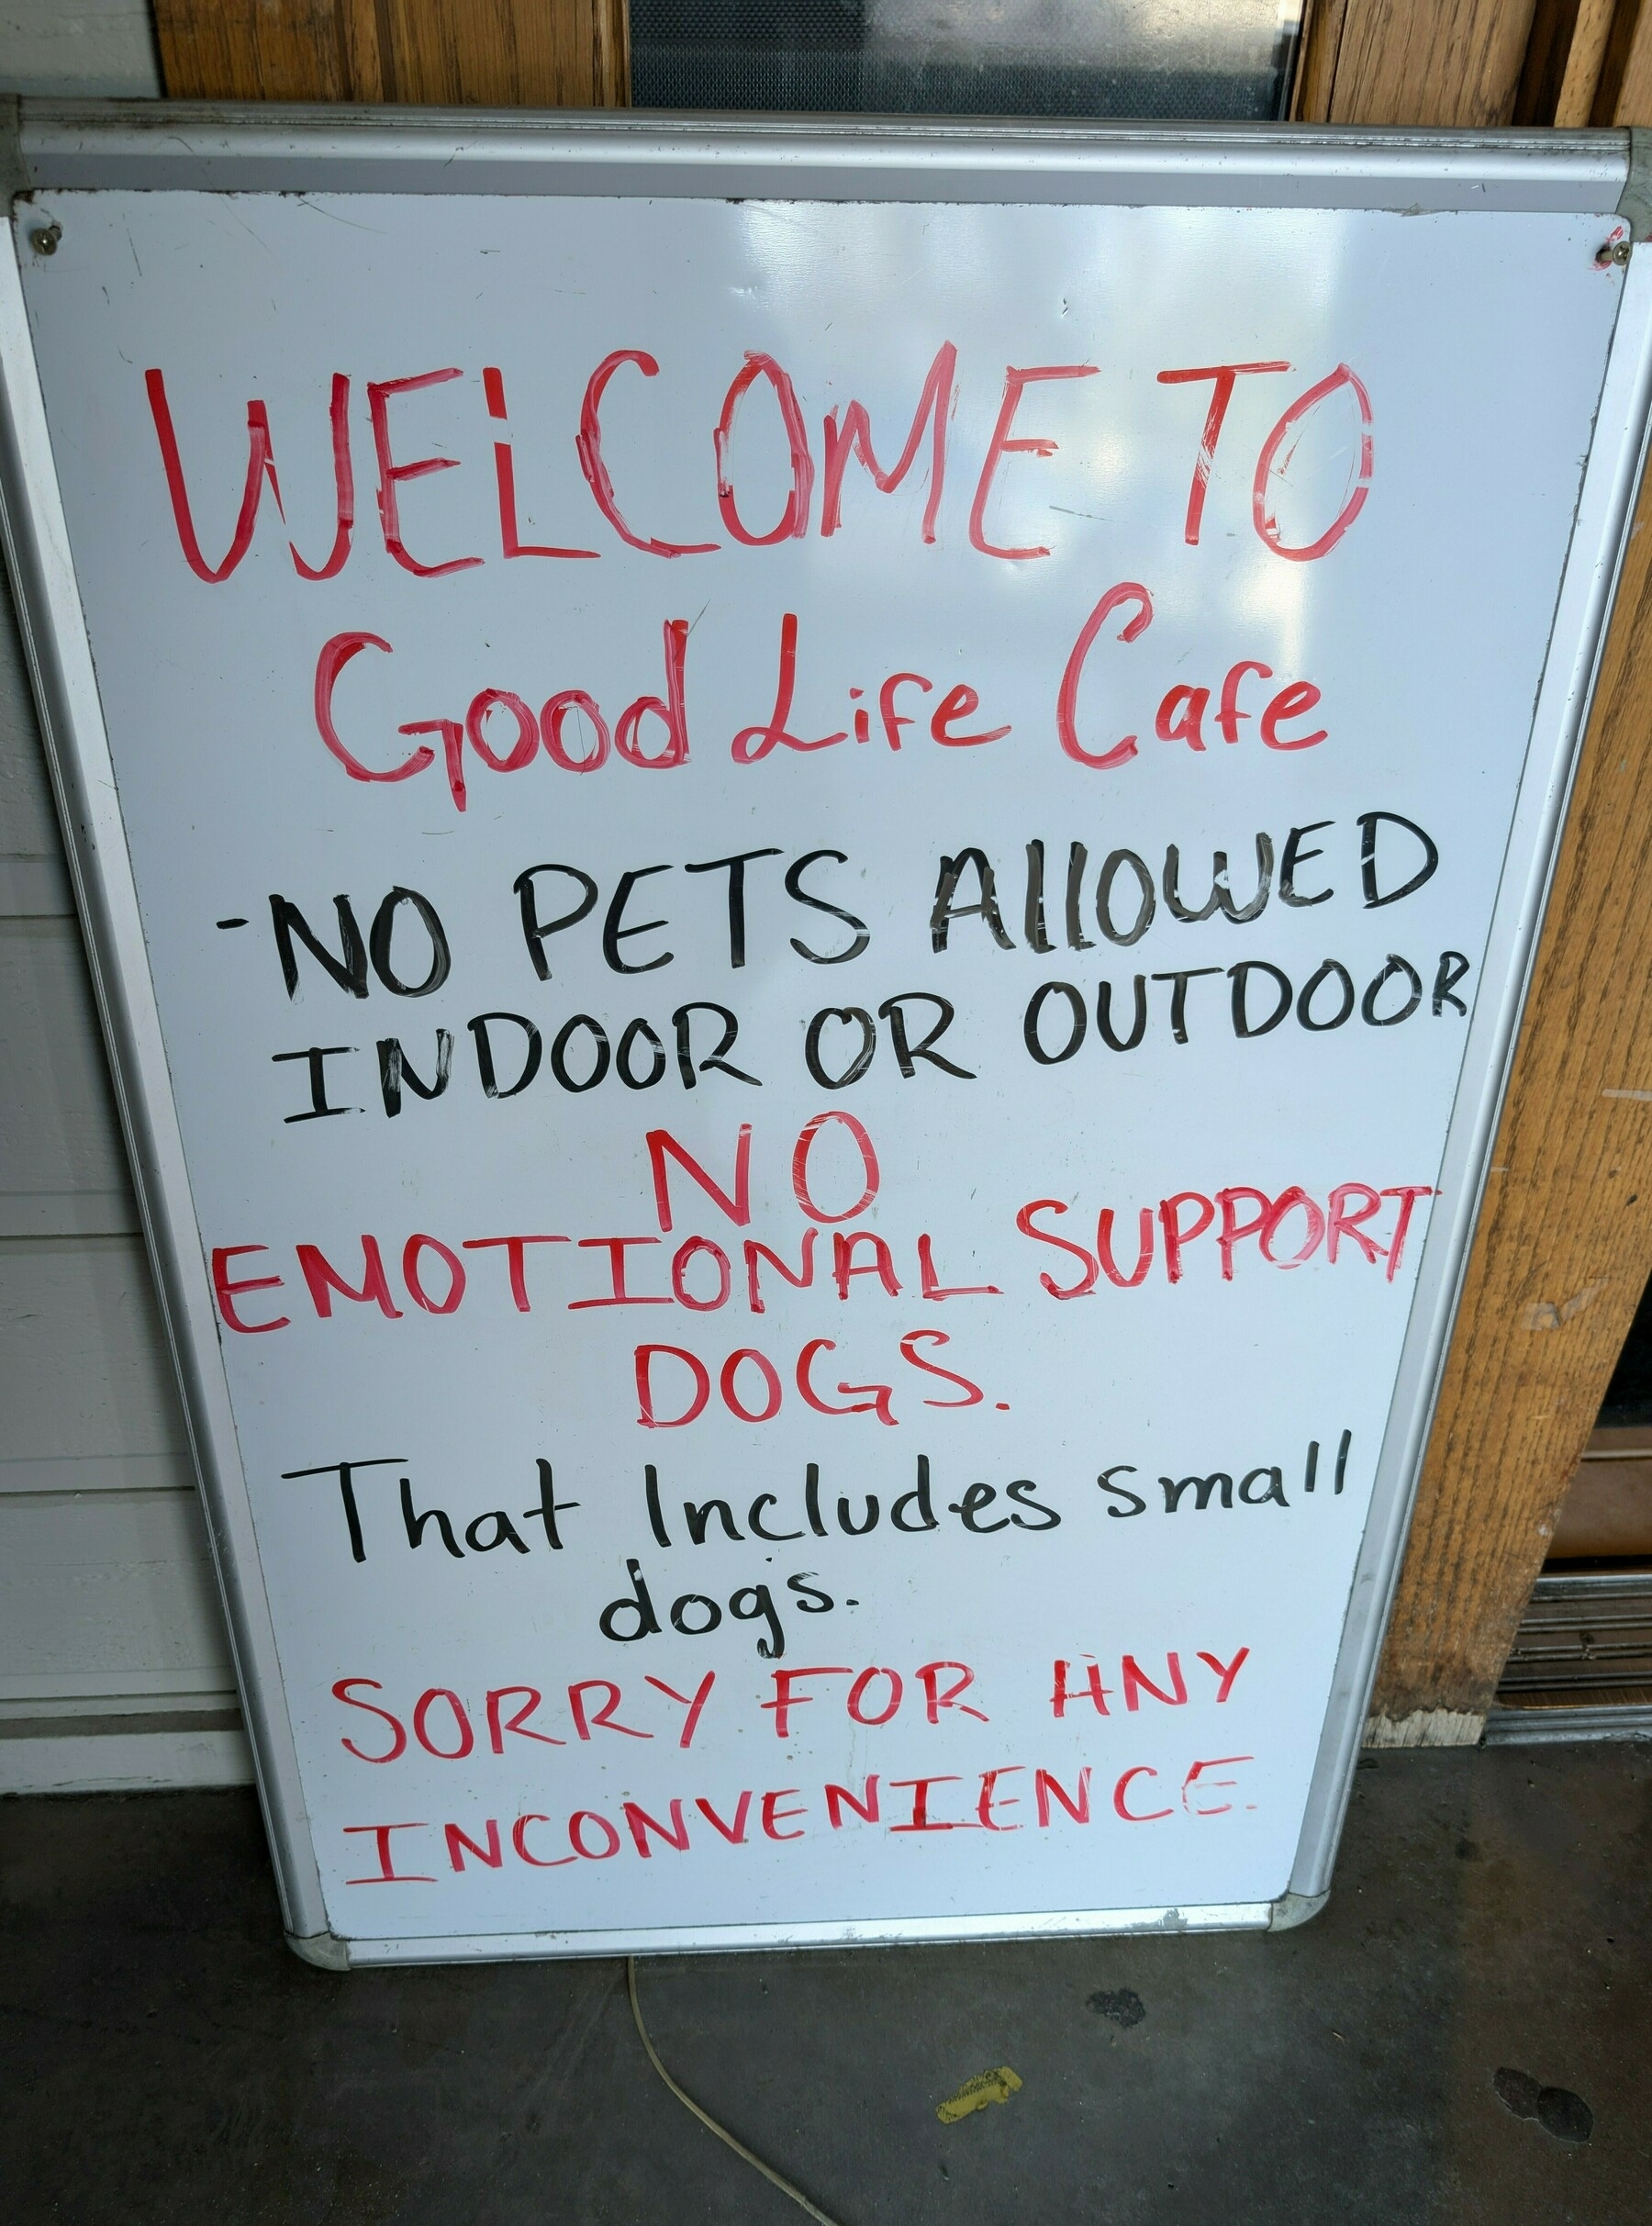 WELCOME TO
Good Life Cafe
-NO PETS AllOWED
INDOOR OR OUTDOOR
NO
EMOTIONAL SUPPORT
DOGS.
That Includes small
dogs.
SORRY FOR ANY
INCONVENIENCE.